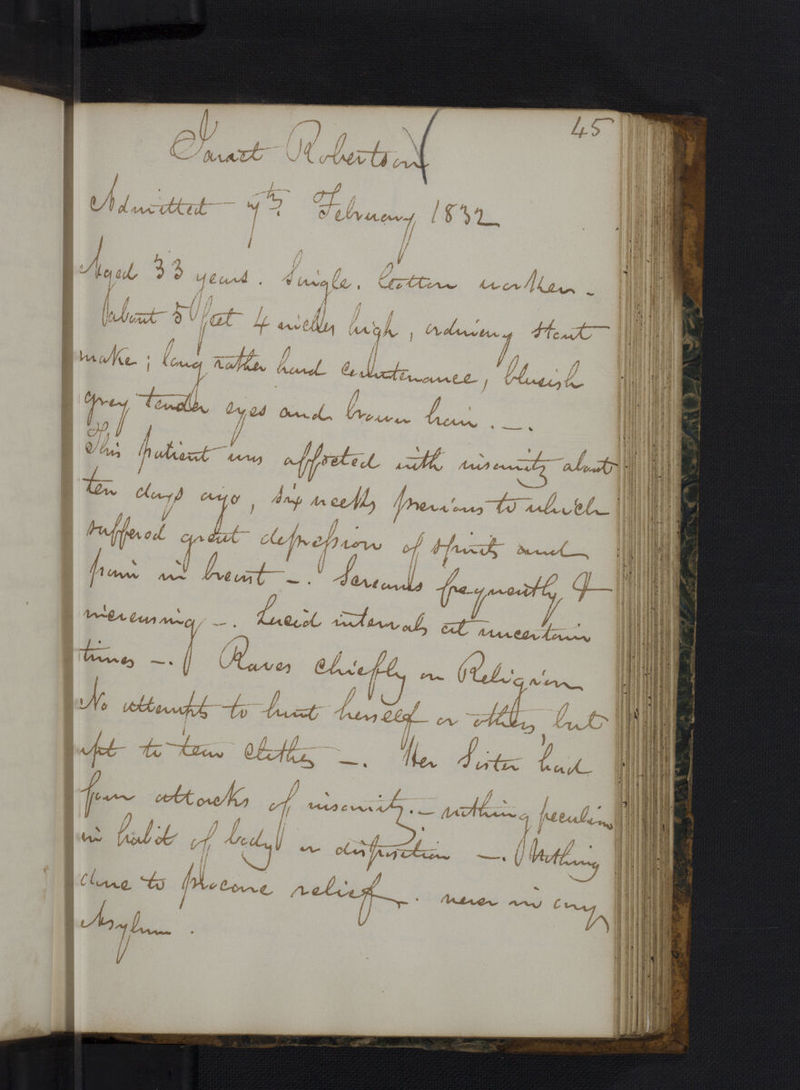 45
Janet Robertson
Admitted 7th. February 1832
Aged 33 years. Single. Cotton worker -
about 5 feet 4 inches high, ordinary stout
make; long rather hard countenance, blueish
grey tender eyes and brown hair. -.
This patient was affected with insanity about
ten days ago, six weeks previous to which
suffered great depression of spirits and
pain in breast -. Screams frequently &
increasing -. Lucid intervals at uncertain
times -. Raves chiefly on Religion
No attempts to hurt herself or others, but
apt to tear clothes -. Her Sister had
four attacks of insanity. - nothing peculiar
in habit of body or disposition -. Nothing
done to procure relief. never in any
Asylum.